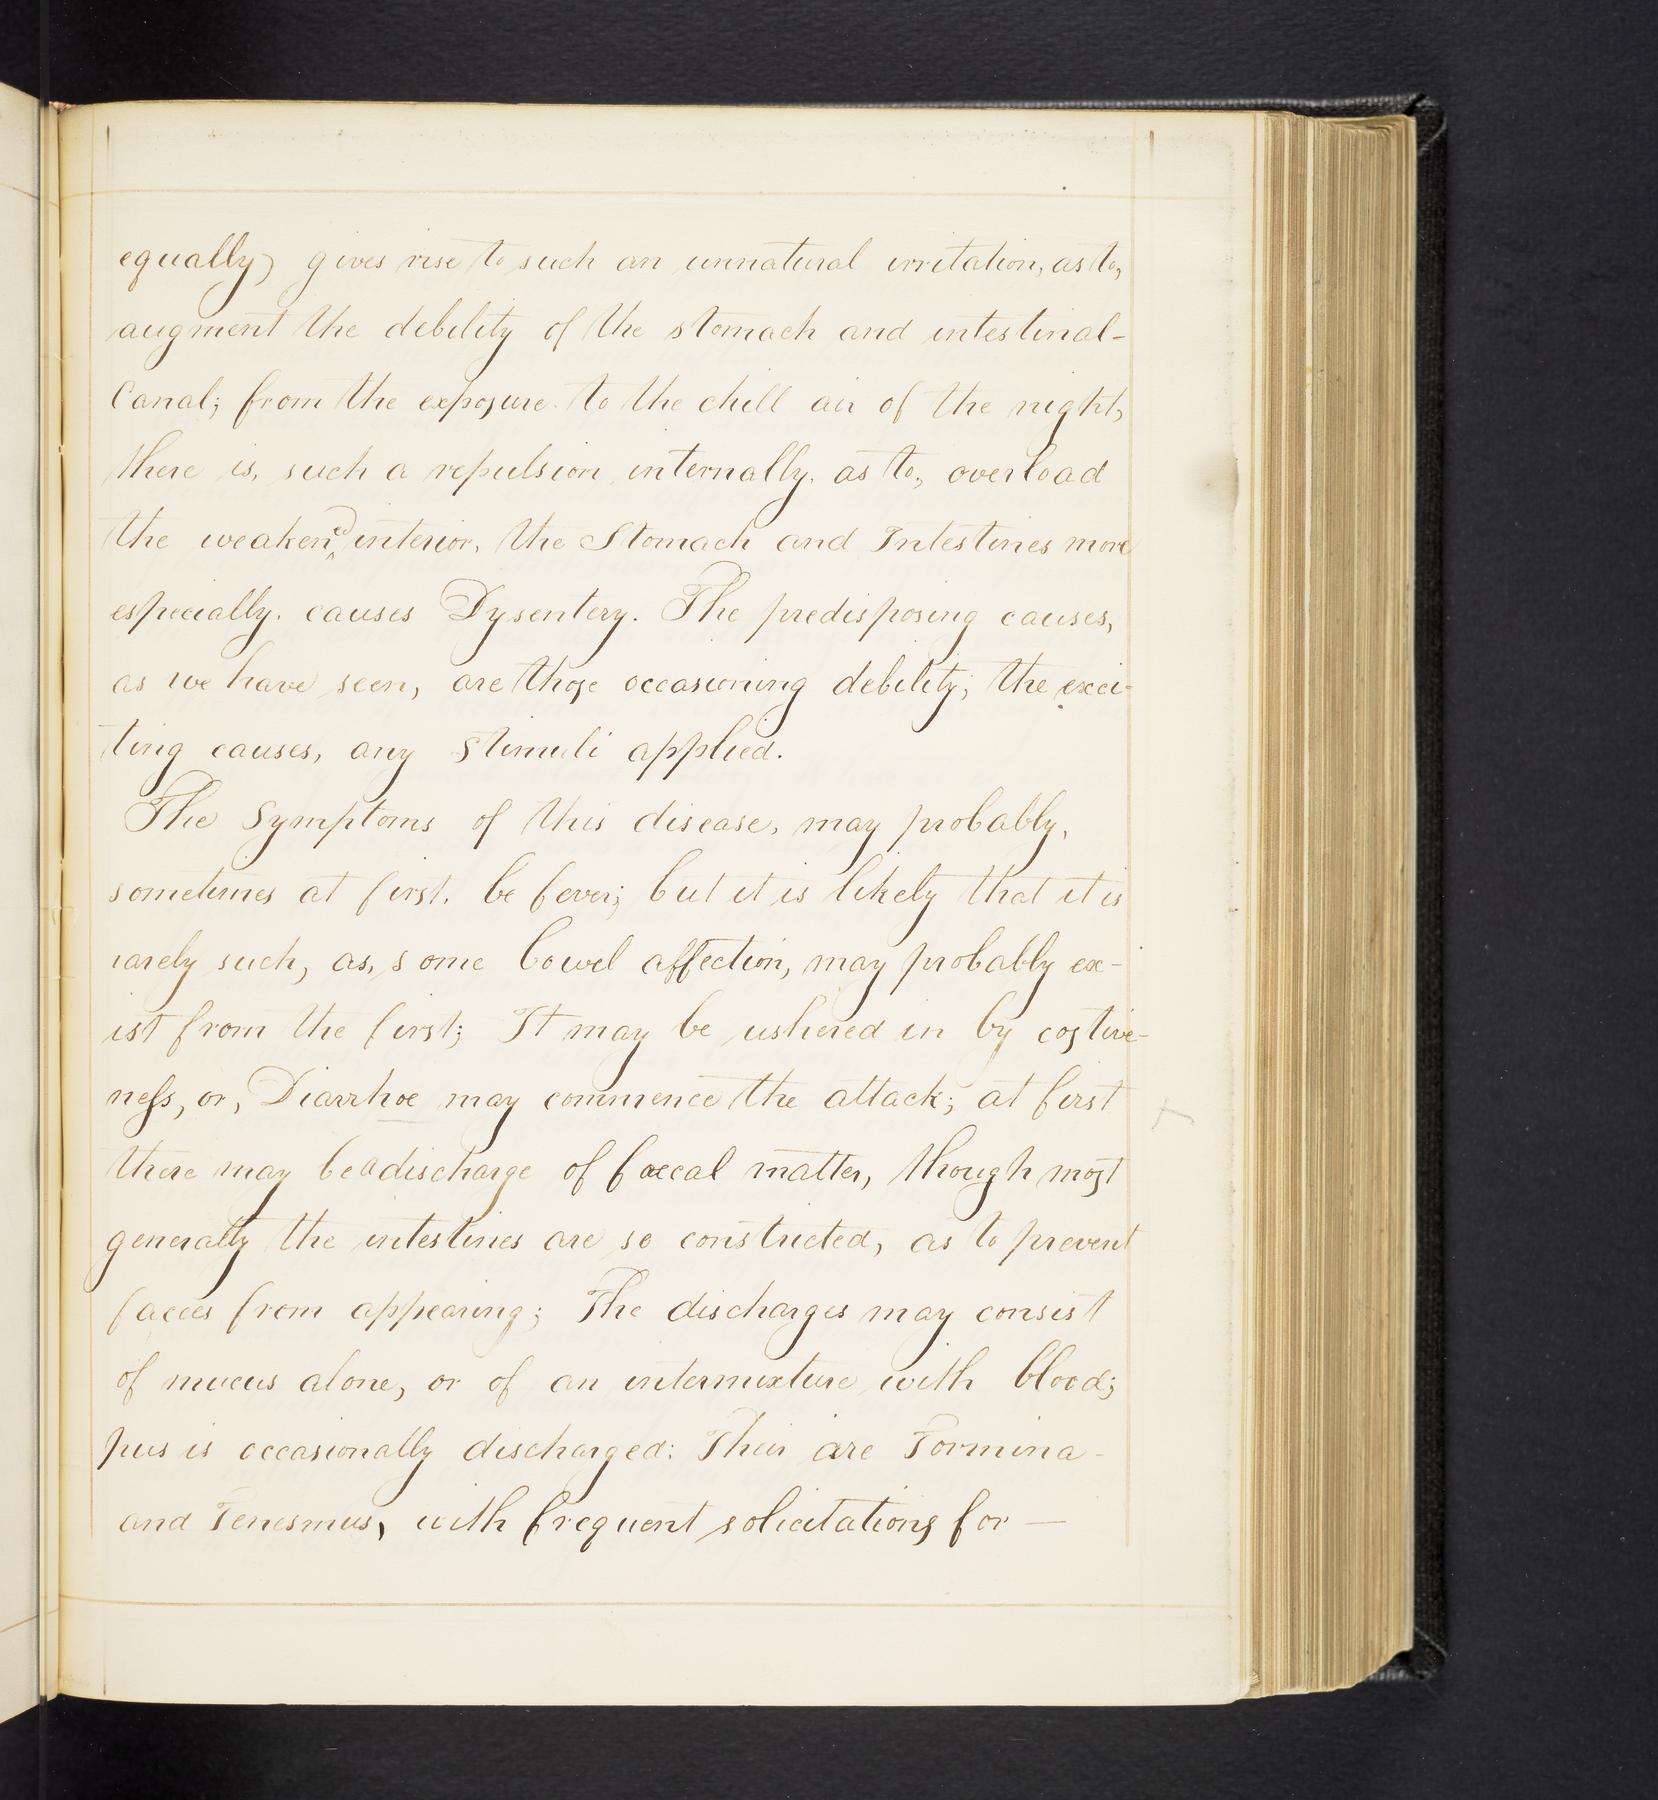 equally, gives rise to such an unnatural irritation, as to,
augment the debility of the stomach and intestinal-
Canal; from the exposure to the chill air of the night,
there is, such a repulsion internally, as to, overload
the weakened interior, the Stomach and Intestines more
especially, causes Dysentery. The predisposing causes,
as we have seen, are those occasioning debility; the exci-
ting causes, any Stimuli applied.
The Symptoms of this disease, may probably,
sometimes at first, be fever; but it is likely that it is
rarely such, as, some bowel affection, may probably ex-
ist from the first; It may be ushered in by costive-
ness, or, Diarrhoe may commence the attack; at first
there may be a discharge of faecal matter, though most
generally the intestines are so constricted, as to prevent
faeces from appearing; The discharges may consist
of mucus alone, or of an intermixture with blood;
pus is occasionally discharged: Their are Tormina-
and Tenesmus, with frequent solicitations for —